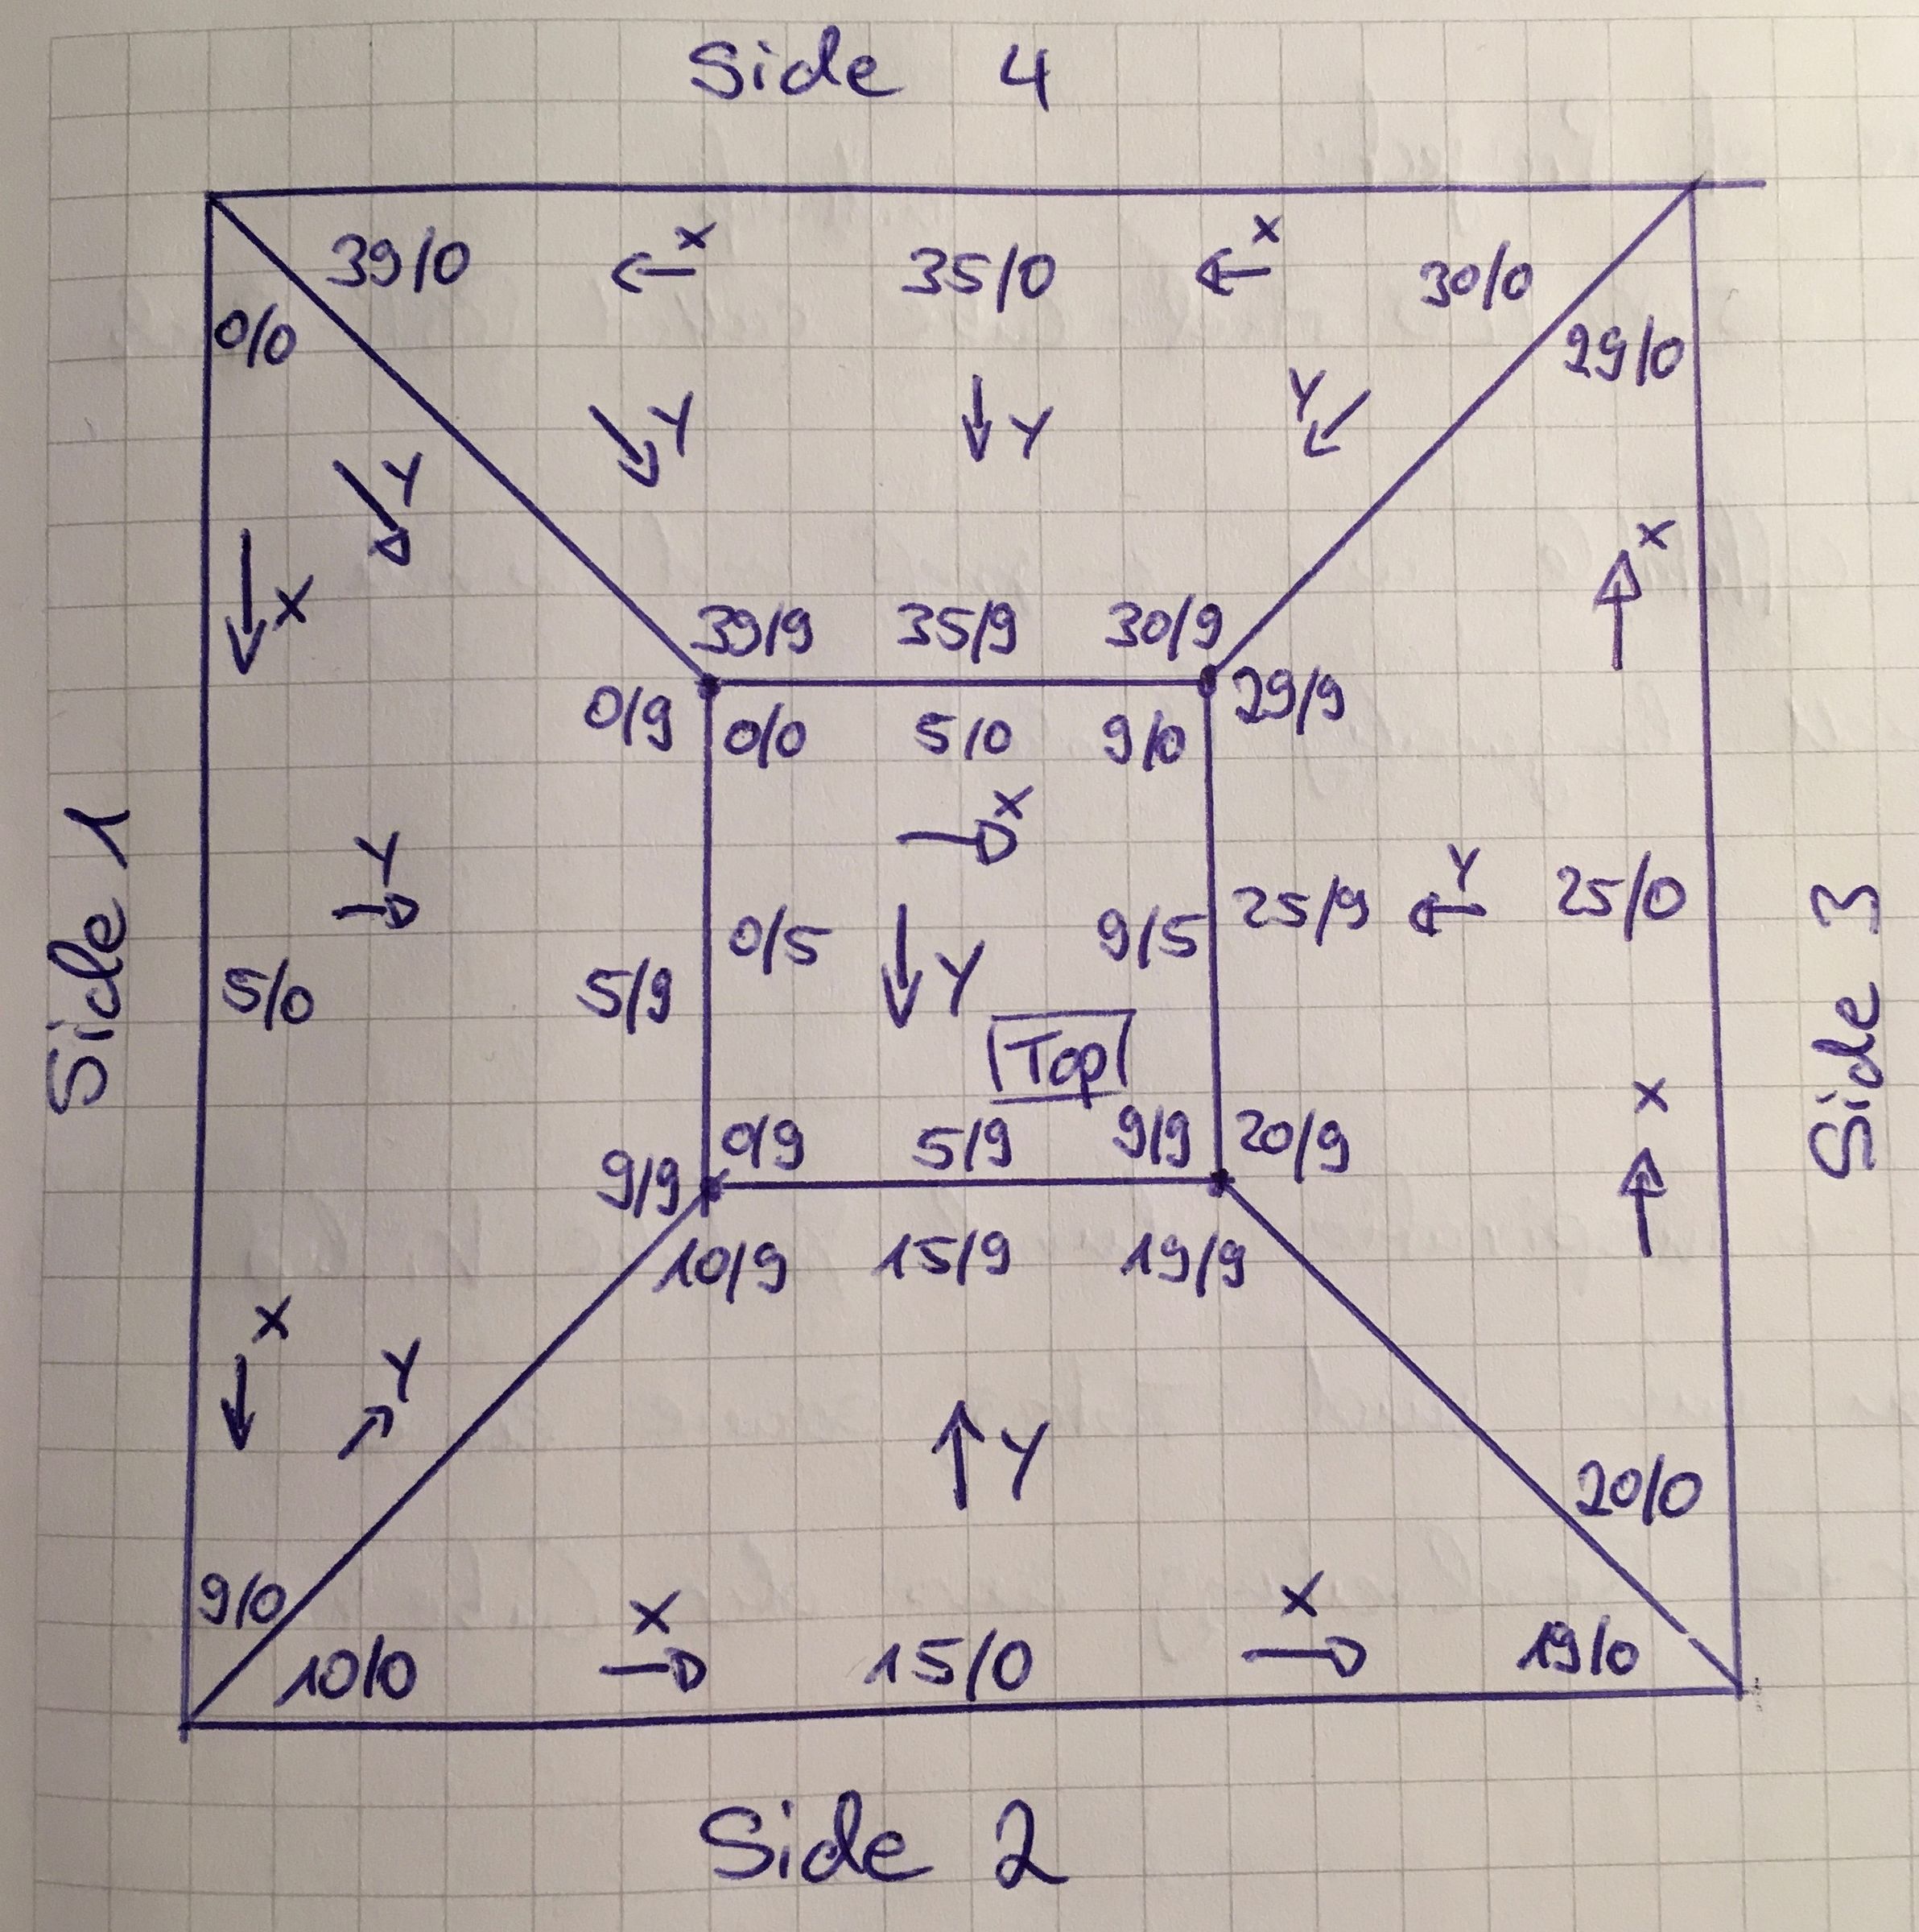 Side 4
39/0 ← X 35/0 ← X 30/0
0/0 29/0
Y Y Y
Y
X X
39/9 35/9 30/9
0/9 0/0 5/0 9/0 29/9
X
Side 1
Y Y
0/5 9/5 25/9 25/0
Side 3
5/0 5/9 Y
Top
X
0/9 5/9 9/9 20/9
9/9
10/9 15/9 19/9
X
Y
Y
20/0
9/0
X X
10/0 15/0 19/0
Side 2